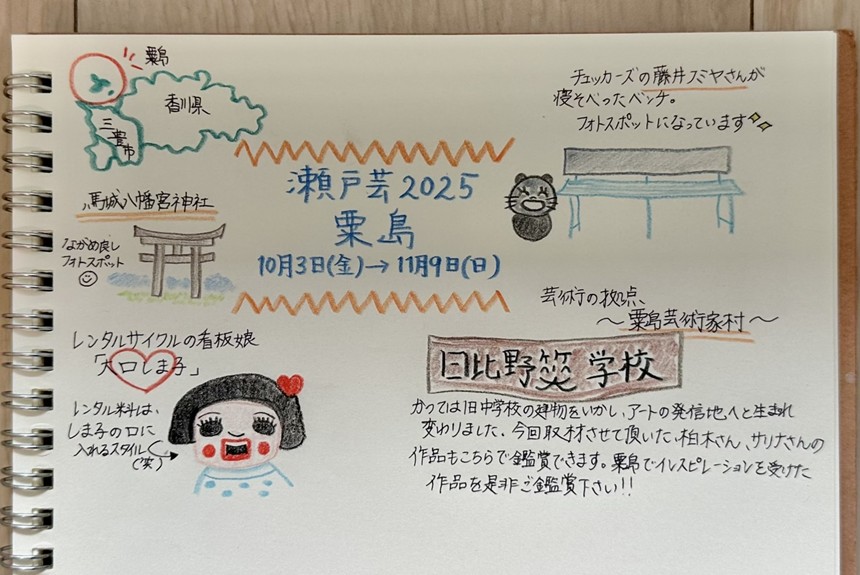 粟島
香川県
三豊市
チェッカーズの藤井フミヤさんが
寝そべったベンチ。
フォトスポットになっています
瀬戸芸2025
粟島
10月3日(金)→11月9日(日)
馬城八幡宮神社
ながめ良し
フォトスポット
芸術の拠点、
〜粟島芸術家村〜
レンタルサイクルの看板娘
「大口しま子」
レンタル料は、
しま子の口に
入れるスタイル
(笑)
日比野 学校
かつては旧中学校の建物をいかし、アートの発信地へと生まれ
変わりました。今回取材させて頂いた、柏木さん、サリナさんの
作品もこちらで鑑賞できます。粟島でインスピレーションを受けた
作品を是非ご鑑賞下さい!!